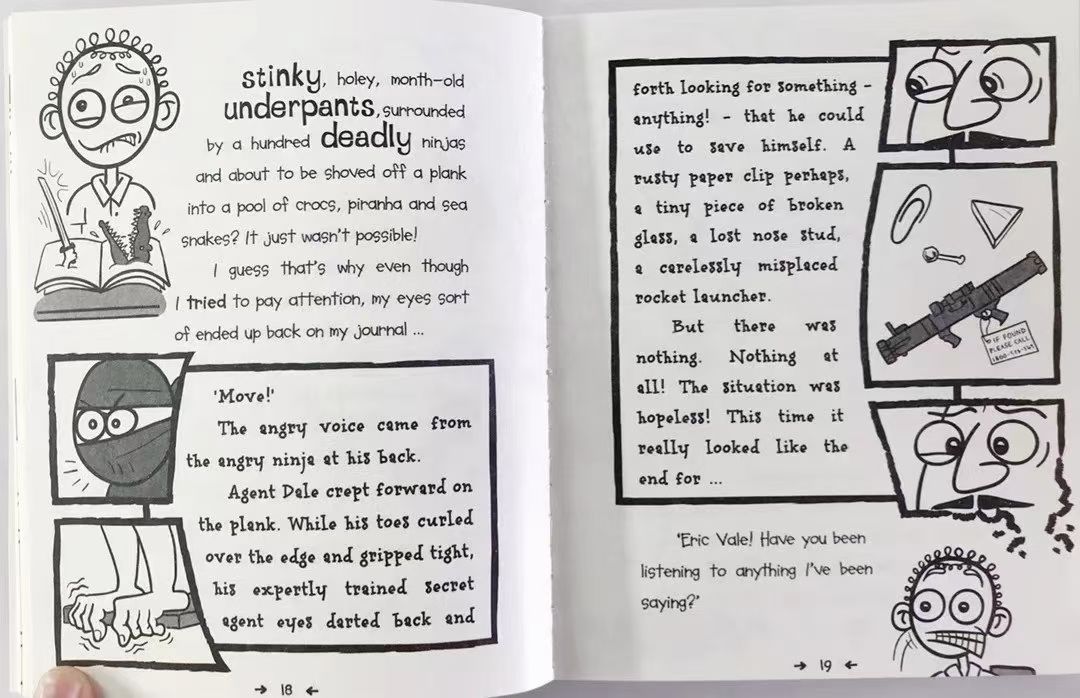 stinky, holey, month-old
underpants, surrounded
by a hundred deadly ninjas
and about to be shoved off a plank
into a pool of crocs, piranha and sea
snakes? It just wasn't possible!
I guess that's why even though
I tried to pay attention, my eyes sort
of ended up back on my journal ...
'Move!'
The angry voice came from
the angry ninja at his back.
Agent Dale crept forward on
the plank. While his toes curled
over the edge and gripped tight,
his expertly trained secret
agent eyes darted back and
18
forth looking for something –
anything! – that he could
use to save himself. A
rusty paper clip perhaps,
a tiny piece of broken
glass, a lost nose stud,
a carelessly misplaced
rocket launcher.
IF FOUND
PLEASE CALL
But there was
nothing. Nothing at
all! The situation was
hopeless! This time it
really looked like the
end for ...
'Eric Vale! Have you been
listening to anything I've been
saying?'
19